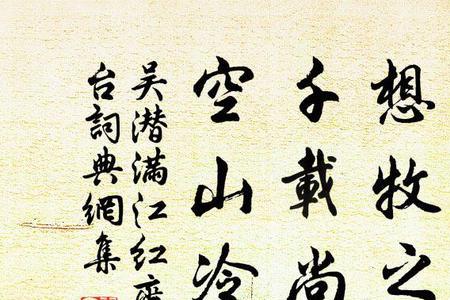 想牧之
千載尚
空山冷
吴潜满江红齊
台詞典網集